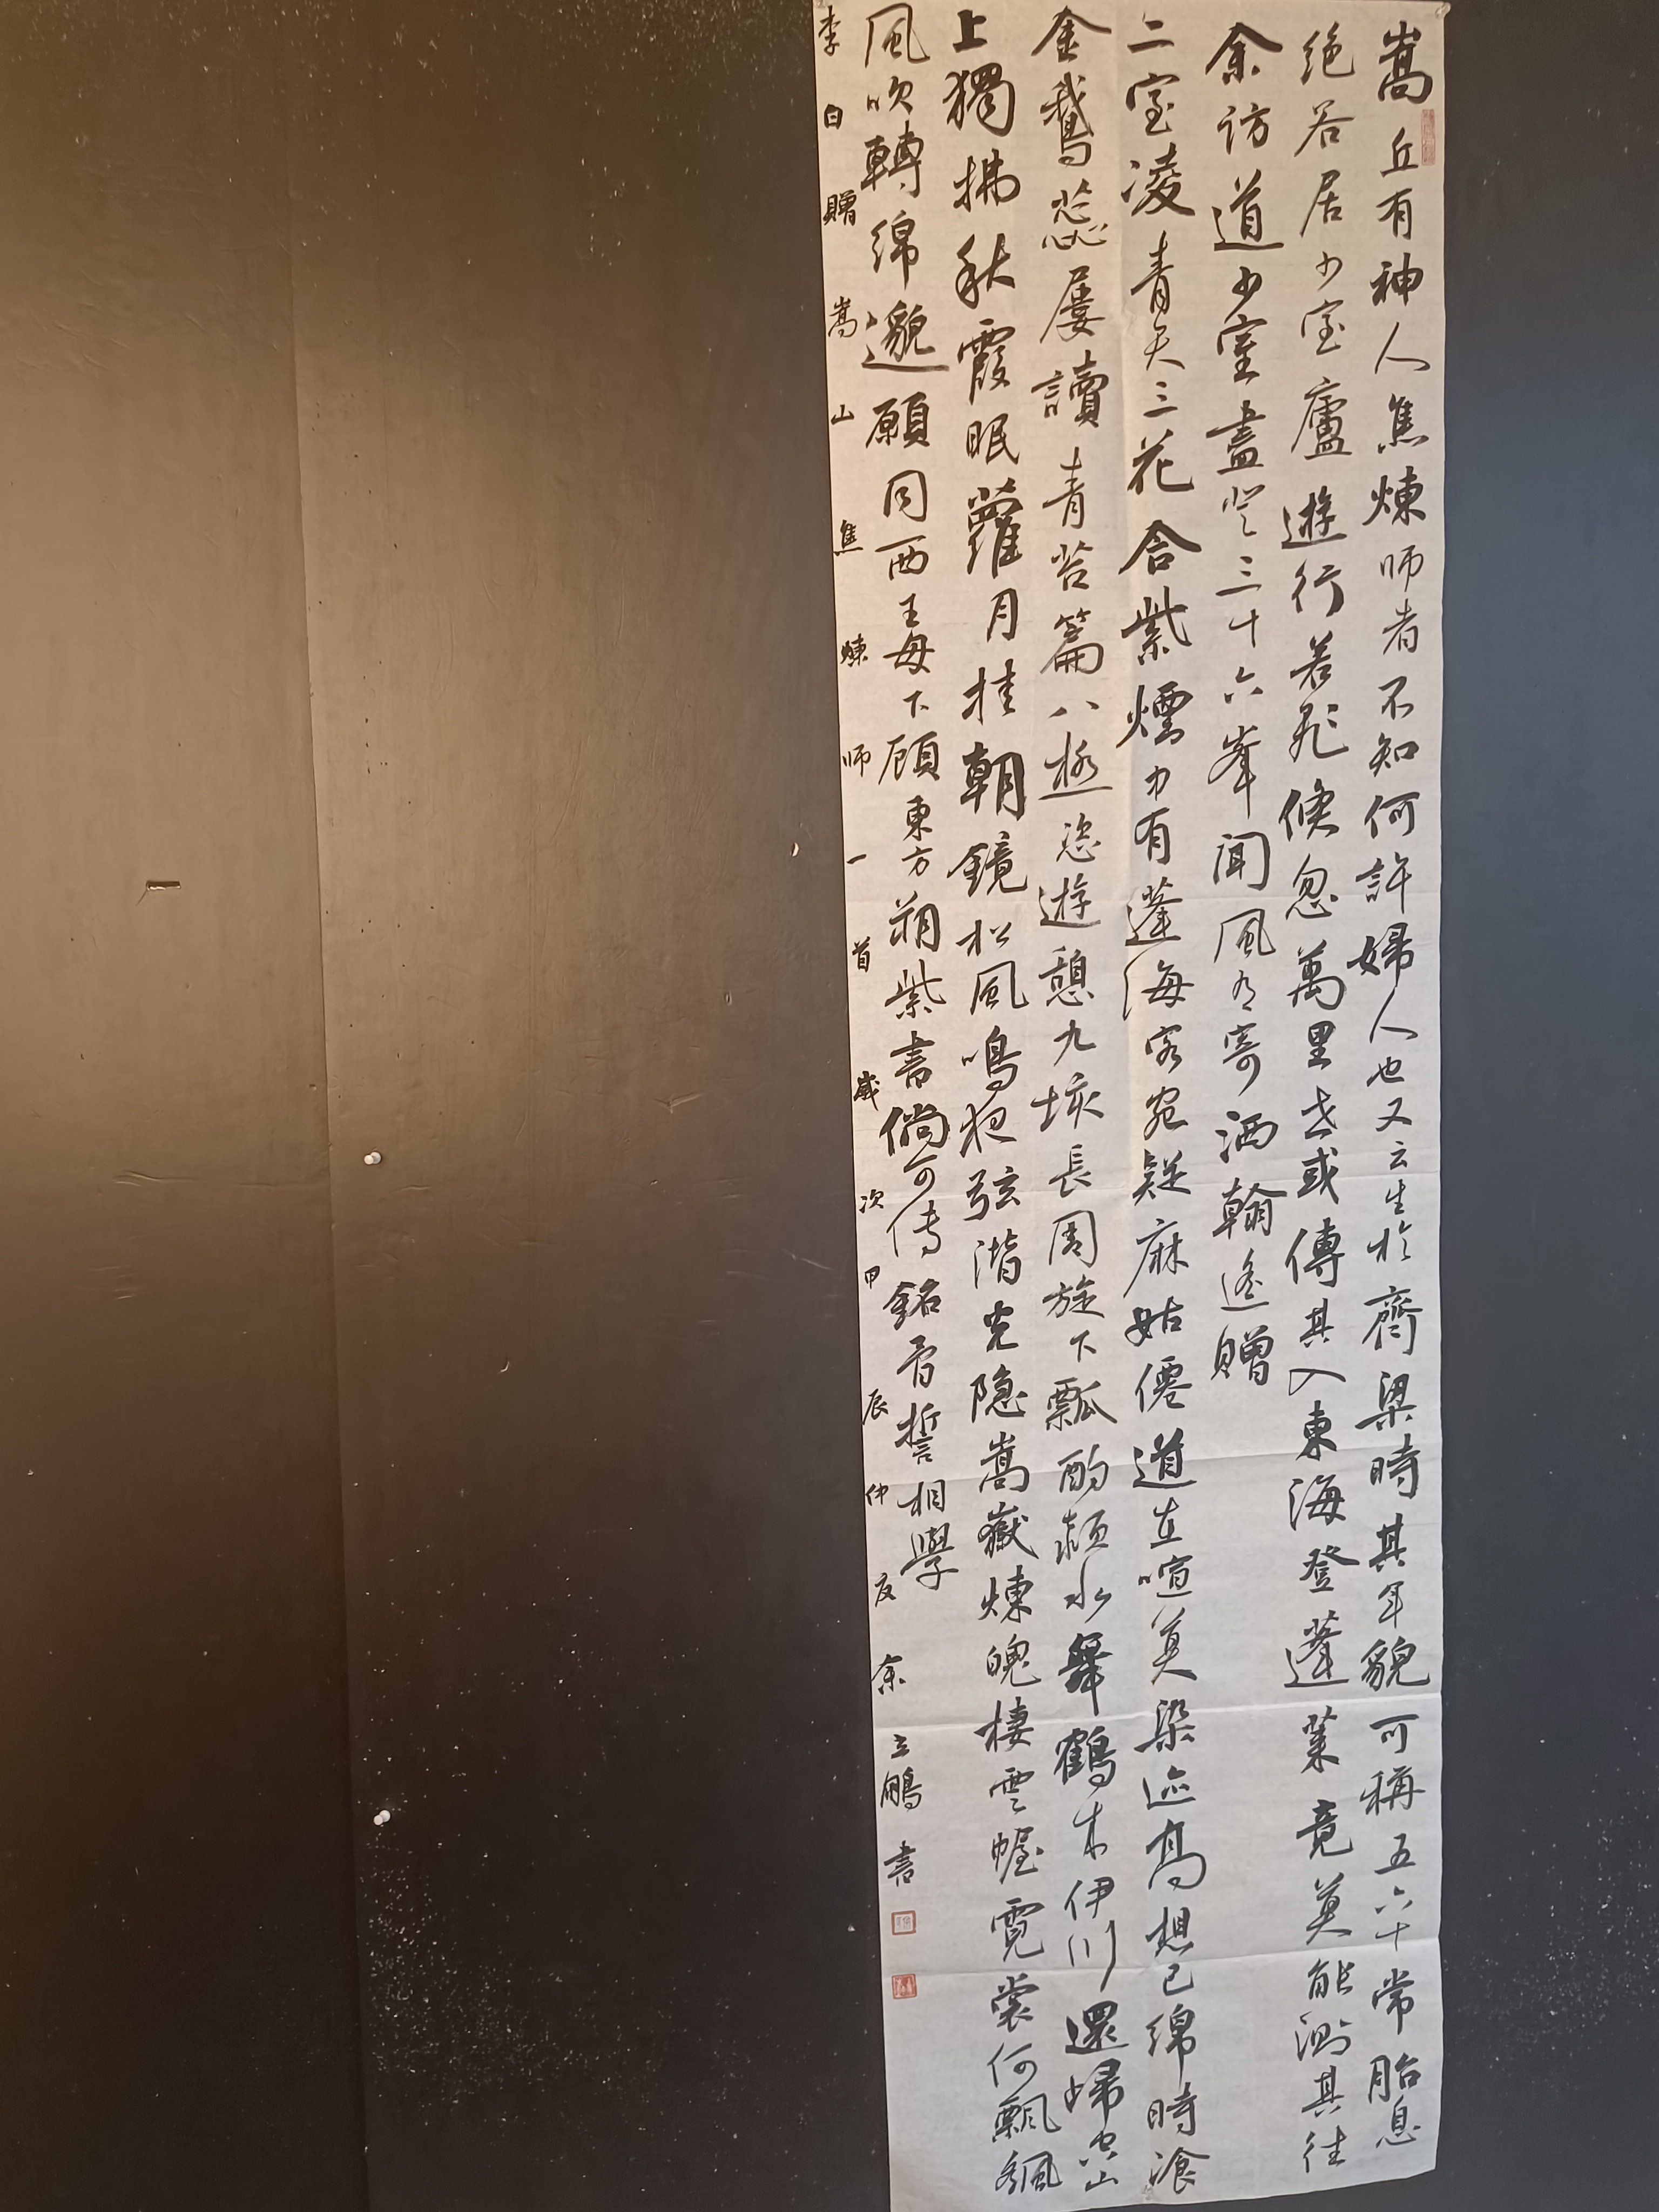 嵩丘有神人焦煉師者不知何許婦人也又云生於齊梁時其年貌可稱五六十常胎息
絶谷居少室廬遊行若飛倏忽萬里世或傳其入東海登蓬萊竟莫能測其往
余訪道少室盡登三十六峯聞風有寄洒翰遙贈
二室凌青天三花含紫煙中有蓬海客宛疑麻姑僊道在喧莫染迹高想已綿時飡
金鵝蕊屢讀青苔篇八極恣遊憩九垓長周旋下瓢酌潁水舞鶴來伊川還歸空山
上獨拂秋霞眠蘿月挂朝鏡松風鳴夜弦潛光隐嵩嶽煉魄棲雲幄霓裳何飄颻
風吹轉綿邈願同西王母下顧東方朔紫書儻可傳銘骨誓相學
李白贈嵩山焦煉師一首歲次甲辰仲夏余立鵬書